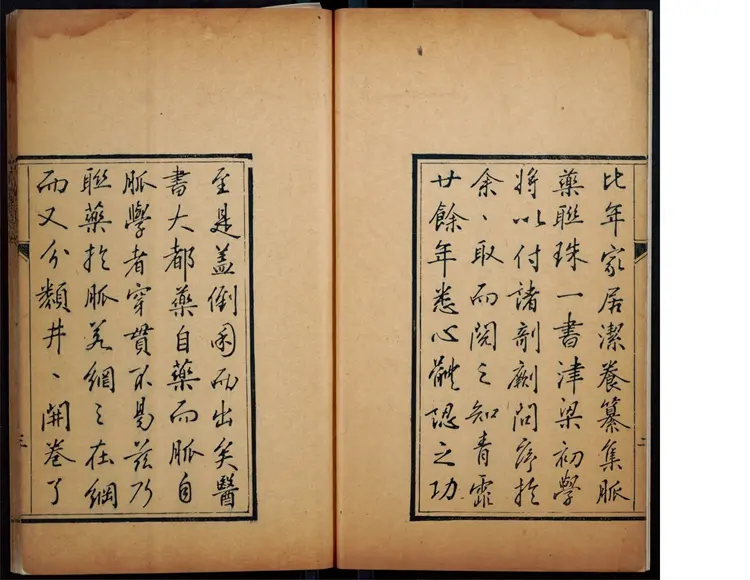 比年家居潔養纂集脈
藥聯珠一書津梁初學
將以付諸剞劂問序於
余、取而閱之知青霏
廿餘年悉心體認之功
二
至是盖倒囷而出矣醫
書大都藥自藥而脈自
脈學者穿貫不易茲乃
聯藥於脈若網之在綱
而又分類井、開卷了
三